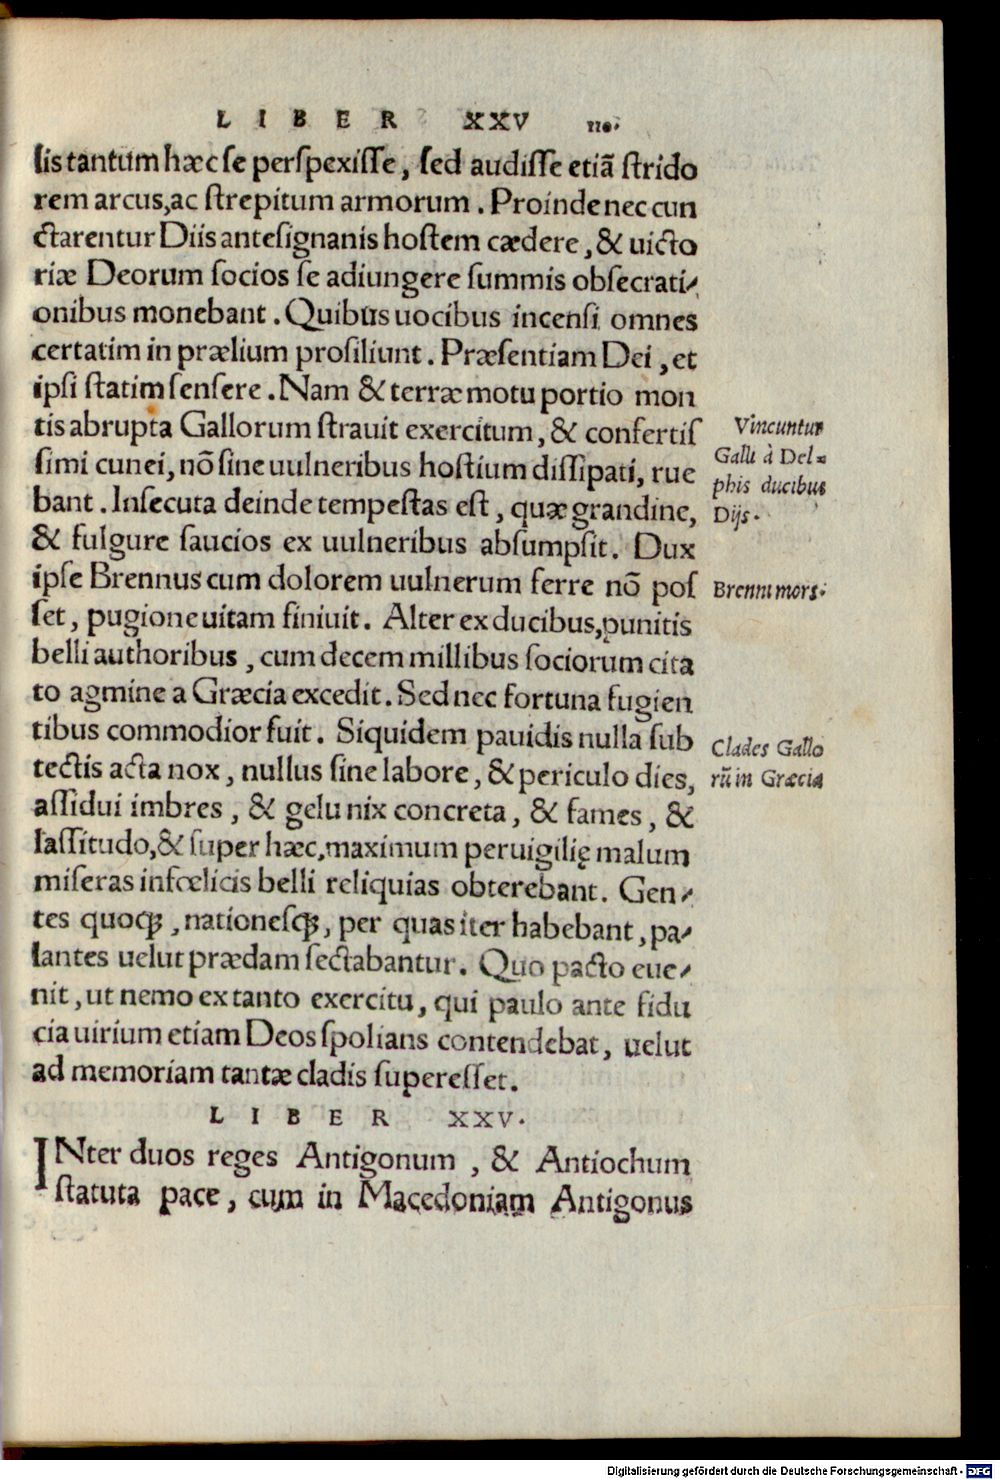 LIBER XXV 110.
lis tantum hæc se perspexisse, sed audisse etiã strido
rem arcus, ac strepitum armorum. Proinde nec cun
ctarentur Diis antesignanis hostem cædere, & uicto
riæ Deorum socios se adiungere summis obsecrati-
onibus monebant. Quibus uocibus incensi omnes
certatim in prælium prosiliunt. Præsentiam Dei, et
ipsi statim sensere. Nam & terræ motu portio mon
tis abrupta Gallorum strauit exercitum, & confertis
simi cunei, nõ sine uulneribus hostium dissipati, rue
bant. Insecuta deinde tempestas est, quæ grandine,
& fulgure saucios ex uulneribus absumpsit. Dux
ipse Brennus cum dolorem uulnerum ferre nõ pos
set, pugione uitam finiuit. Alter ex ducibus, punitis
belli authoribus, cum decem millibus sociorum cita
to agmine a Græcia excedit. Sed nec fortuna fugien
tibus commodior fuit. Siquidem pauidis nulla sub
tectis acta nox, nullus sine labore, & periculo dies,
assidui imbres, & gelu nix concreta, & fames, &
lassitudo, & super hæc, maximum peruigilię malum
miseras infœlicis belli reliquias obterebant. Gen-
tes quoqꝫ, nationesqꝫ, per quas iter habebant, pa-
lantes uelut prædam sectabantur. Quo pacto eue-
nit, ut nemo ex tanto exercitu, qui paulo ante fidu
cia uirium etiam Deos spolians contendebat, uelut
ad memoriam tantæ cladis superesset.
LIBER XXV.
INter duos reges Antigonum, & Antiochum
statuta pace, cum in Macedoniam Antigonus
Vincuntur
Galli à Del-
phis ducibus
Dijs.
Brenni mors.
Clades Gallo
rũ in Græcia
Digitalisierung gefördert durch die Deutsche Forschungsgemeinschaft - DFG